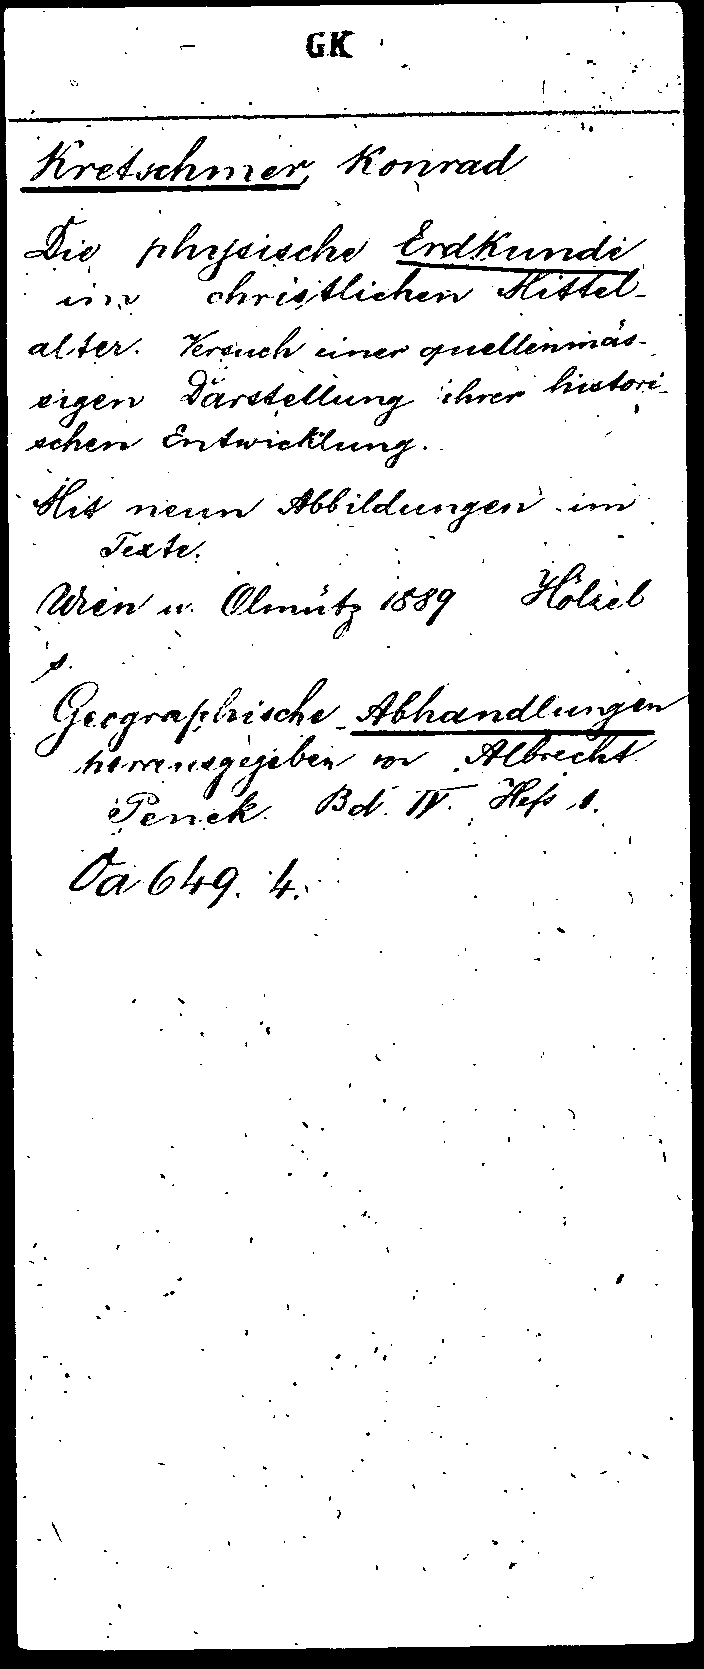 GK
Kretschmer, Konrad
Die physische Erdkunde
im christlichen Mittel-
alter. Versuch einer quellenmäs-
sigen Darstellung ihrer histori-
schen Entwicklung.
Mit neun Abbildungen im
Texte.
Wien u. Olmütz 1889 Hölzel
s.
Geographische Abhandlungen
herausgegeben von Albrecht
Penck. Bd. IV. Heft 1.
Oa 649. 4.